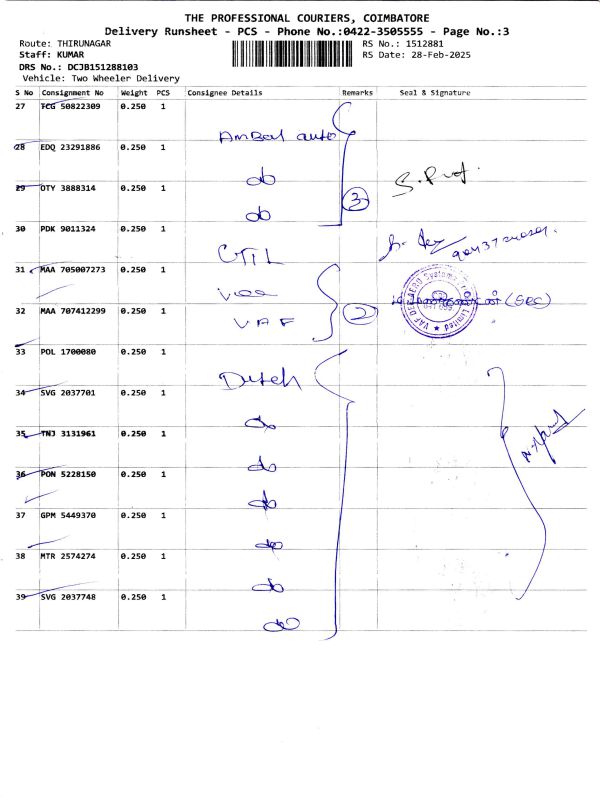 THE PROFESSIONAL COURIERS, COIMBATORE
Delivery Runsheet - PCS - Phone No.:0422-3505555 - Page No.:3
Route: THIRUNAGAR
RS No.: 1512881
Staff: KUMAR
RS Date: 28-Feb-2025
DRS No.: DCJB151288103
Vehicle: Two Wheeler Delivery
S No Consignment No Weight PCS Consignee Details Remarks Seal & Signature
27 TCG 50822309 0.250 1
Ambal auto
28 EDQ 23291886 0.250 1
do
29 OTY 3888314 0.250 1
do
3
30 PDK 9011324 0.250 1
CTIL
31 MAA 705007273 0.250 1
32 MAA 707412299 0.250 1
VAF
2
(SEC)
33 POL 1700080 0.250 1
34 SVG 2037701 0.250 1
do
35 TNJ 3131961 0.250 1
do
36 PON 5228150 0.250 1
do
37 GPM 5449370 0.250 1
do
38 MTR 2574274 0.250 1
do
39 SVG 2037748 0.250 1
do